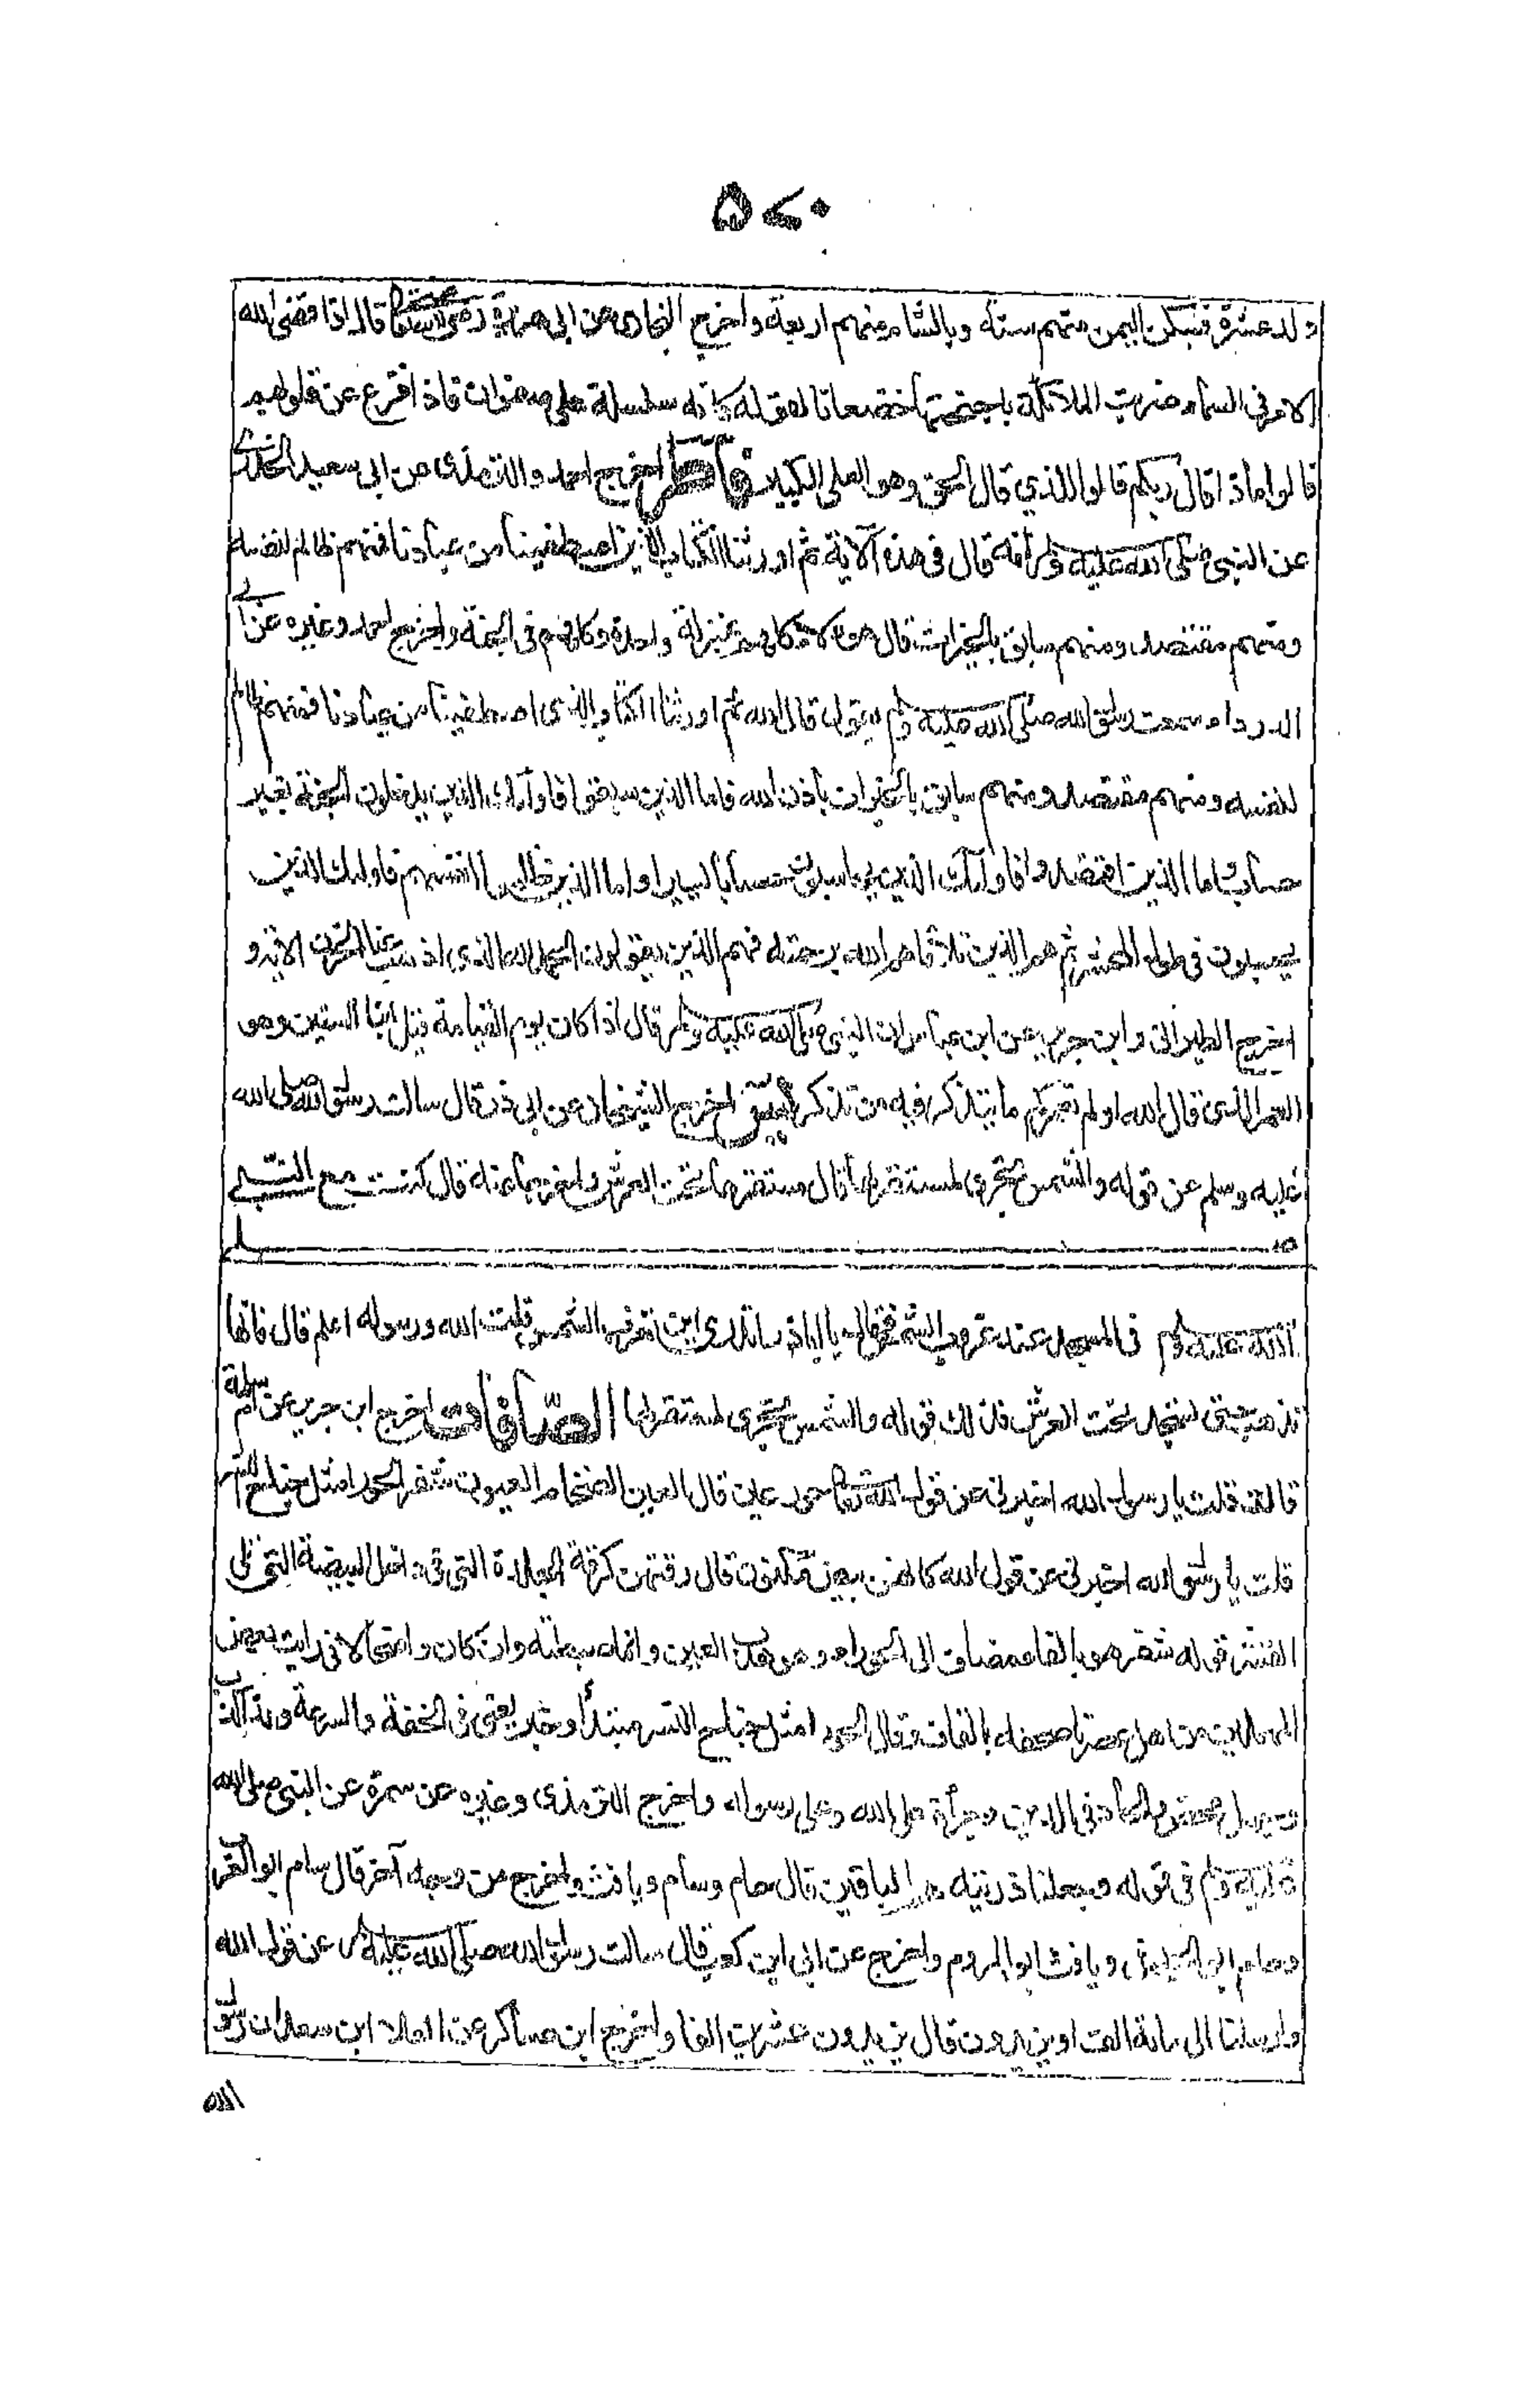 ۵۷۰
ولد عشرة فسكن اليمن منهم ستة وبالشام منهم اربعة واخرج البخارى عن ابى هريرة رضى الله قال اذا قضى الله
الامر فى السماء ضربت الملائكة باجنحتها خضعانا لقوله كانه سلسلة على صفوان فاذا فزع عن قلوبهم
قالوا ماذا قال ربكم قالوا للذي قال الحق وهو العلى الكبير فاطر اخرج احمد والترمذى عن ابى سعيد الخدرى
عن النبى صلى الله عليه وسلم انه قال فى هذه الآية ثم اورثنا الكتاب الذين اصطفينا من عبادنا فمنهم ظالم لنفسه
ومنهم مقتصد ومنهم سابق بالخيرات قال هؤلاء كلهم بمنزلة واحدة وكلهم فى الجنة واخرج احمد وغيره عن ابى
الدرداء سمعت رسول الله صلى الله عليه وسلم يقول قال الله ثم اورثنا الكتاب الذين اصطفينا من عبادنا فمنهم ظالم
لنفسه ومنهم مقتصد ومنهم سابق بالخيرات باذن الله فاما الذين سبقوا فاولئك الذين يدخلون الجنة بغير
حساب واما الذين اقتصدوا فاولئك الذين يحاسبون حسابا يسيرا واما الذين ظلموا انفسهم فاولئك الذين
يحبسون فى طول المحشر ثم هم الذين تلافاهم الله برحمته فهم الذين يقولون الحمد لله الذى اذهب عنا الحزن الآية و
اخرج الطبرانى وابن جرير عن ابن عباس ان النبى صلى الله عليه وسلم قال اذا كان يوم القيامة قيل ابناء الستين وهو
العمر الذى قال الله اولم نعمركم ما يتذكر فيه من تذكر يس اخرج الشيخان عن ابى ذر قال سالت رسول الله صلى الله
عليه وسلم عن قوله والشمس تجرى لمستقر لها قال مستقرها تحت العرش واخرجا عنه قال كنت مع النبى
صلى
الله عليه وسلم فى المسجد عند غروب الشمس فقال يا اباذر اتدرى اين تغرب الشمس قلت الله ورسوله اعلم قال فانها
تذهب حتى تسجد تحت العرش فذلك قوله والشمس تجرى لمستقر لها الصّافات اخرج ابن جرير عن ام سلمة
قالت قلت يا رسول الله اخبرنى عن قول الله حور عين قال العين الضخام العيون شفر الحوراء مثل جناح النسر
قلت يا رسول الله اخبرنى عن قول الله كانهن بيض مكنون قال رقتهن كرقة الجلدة التى فى داخل البيضة التى تلى
القشر قوله شفر هو بالفاء مضاف الى الحوراء وهو هدب العين وانما ضبطته وان كان واضحا لانى رايت بعض
المهملين من اهل عصرنا صحفه بالقاف وقال الحور امثل جناح النسر مبتدأ وخبر يعنى فى الخفة والسرعة وهذا كذب
وجهل محض والحاد فى الدين وجرأة على الله وعلى رسوله واخرج الترمذى وغيره عن سمرة عن النبى صلى الله
عليه وسلم فى قوله وجعلنا ذريته هم الباقين قال حام وسام ويافث واخرج من وجه آخر قال سام ابو العرب
وحام ابو الحبش ويافث ابو الروم واخرج عن ابى ابن كعب قال سالت رسول الله صلى الله عليه وسلم عن قول الله
وارسلنا الى مائة الف او يزيدون قال يزيدون عشرين الفا واخرج ابن عساكر عن العلاء ابن سعد ان رسول
الله